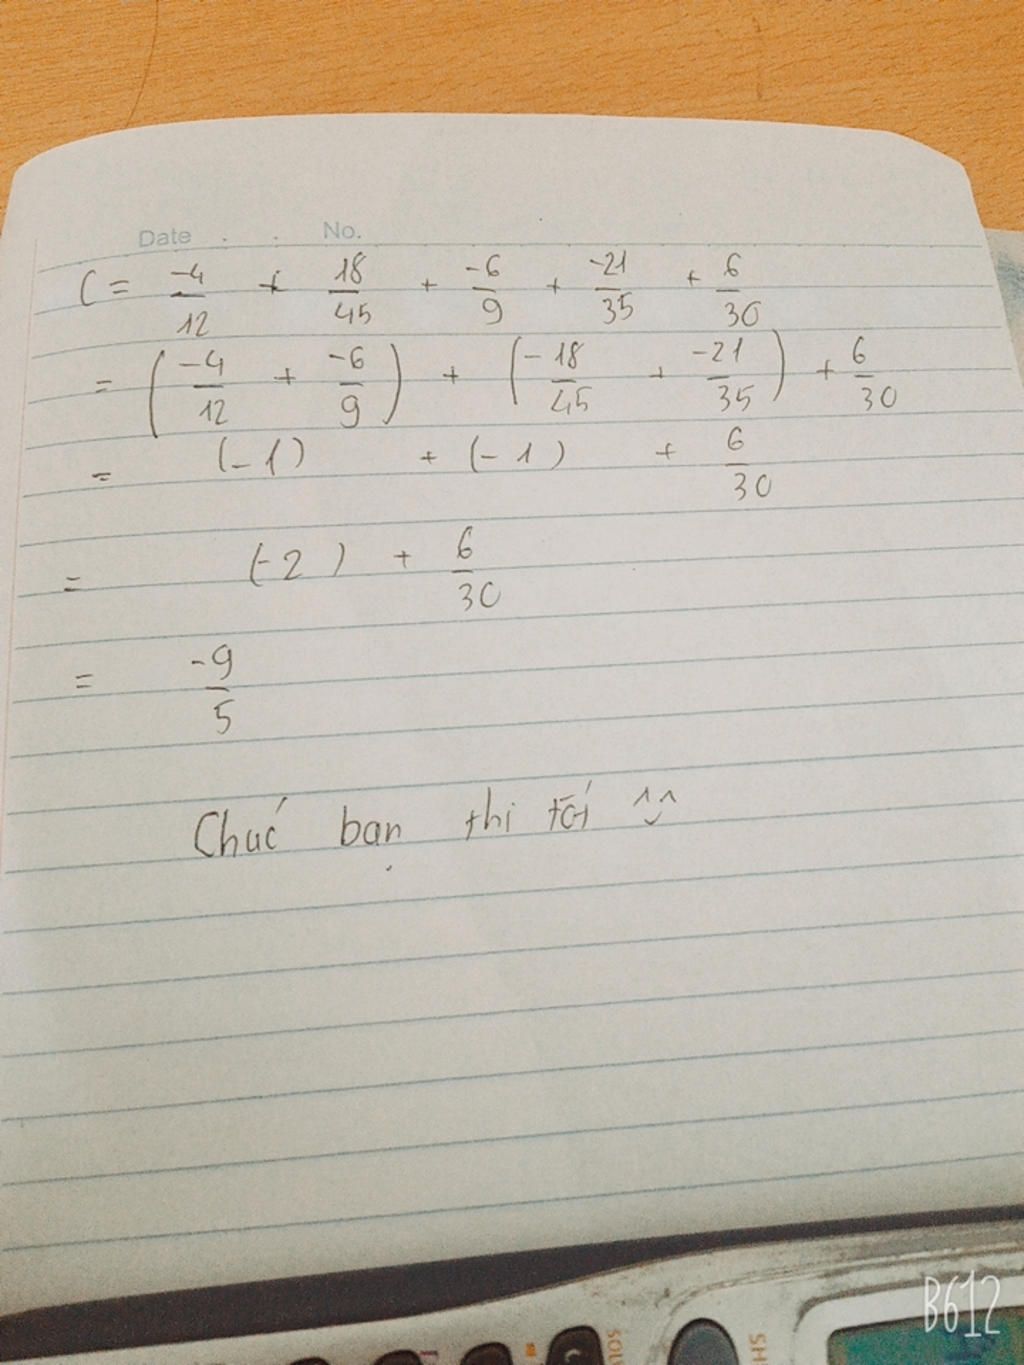 Date . . No.
C = -4/12 + 18/45 + -6/9 + -21/35 + 6/30
= (-4/12 + -6/9) + (-18/45 + -21/35) + 6/30
= (-1) + (-1) + 6/30
= (-2) + 6/30
= -9/5
Chúc bạn thi tốt ^^
B612